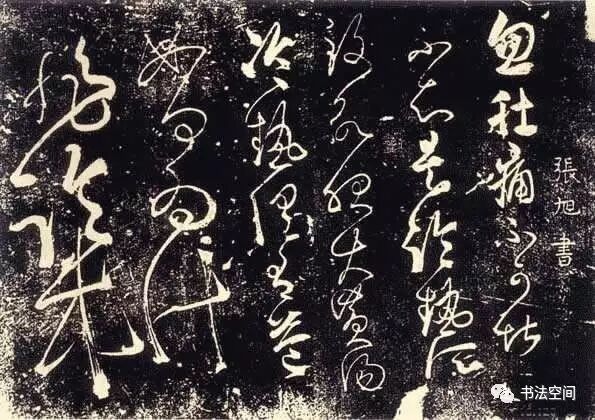 張旭書
忽肚痛不可堪
不知是冷熱所
致欲服大黃湯
冷熱俱有益
如何為計
非臨床
书法空间